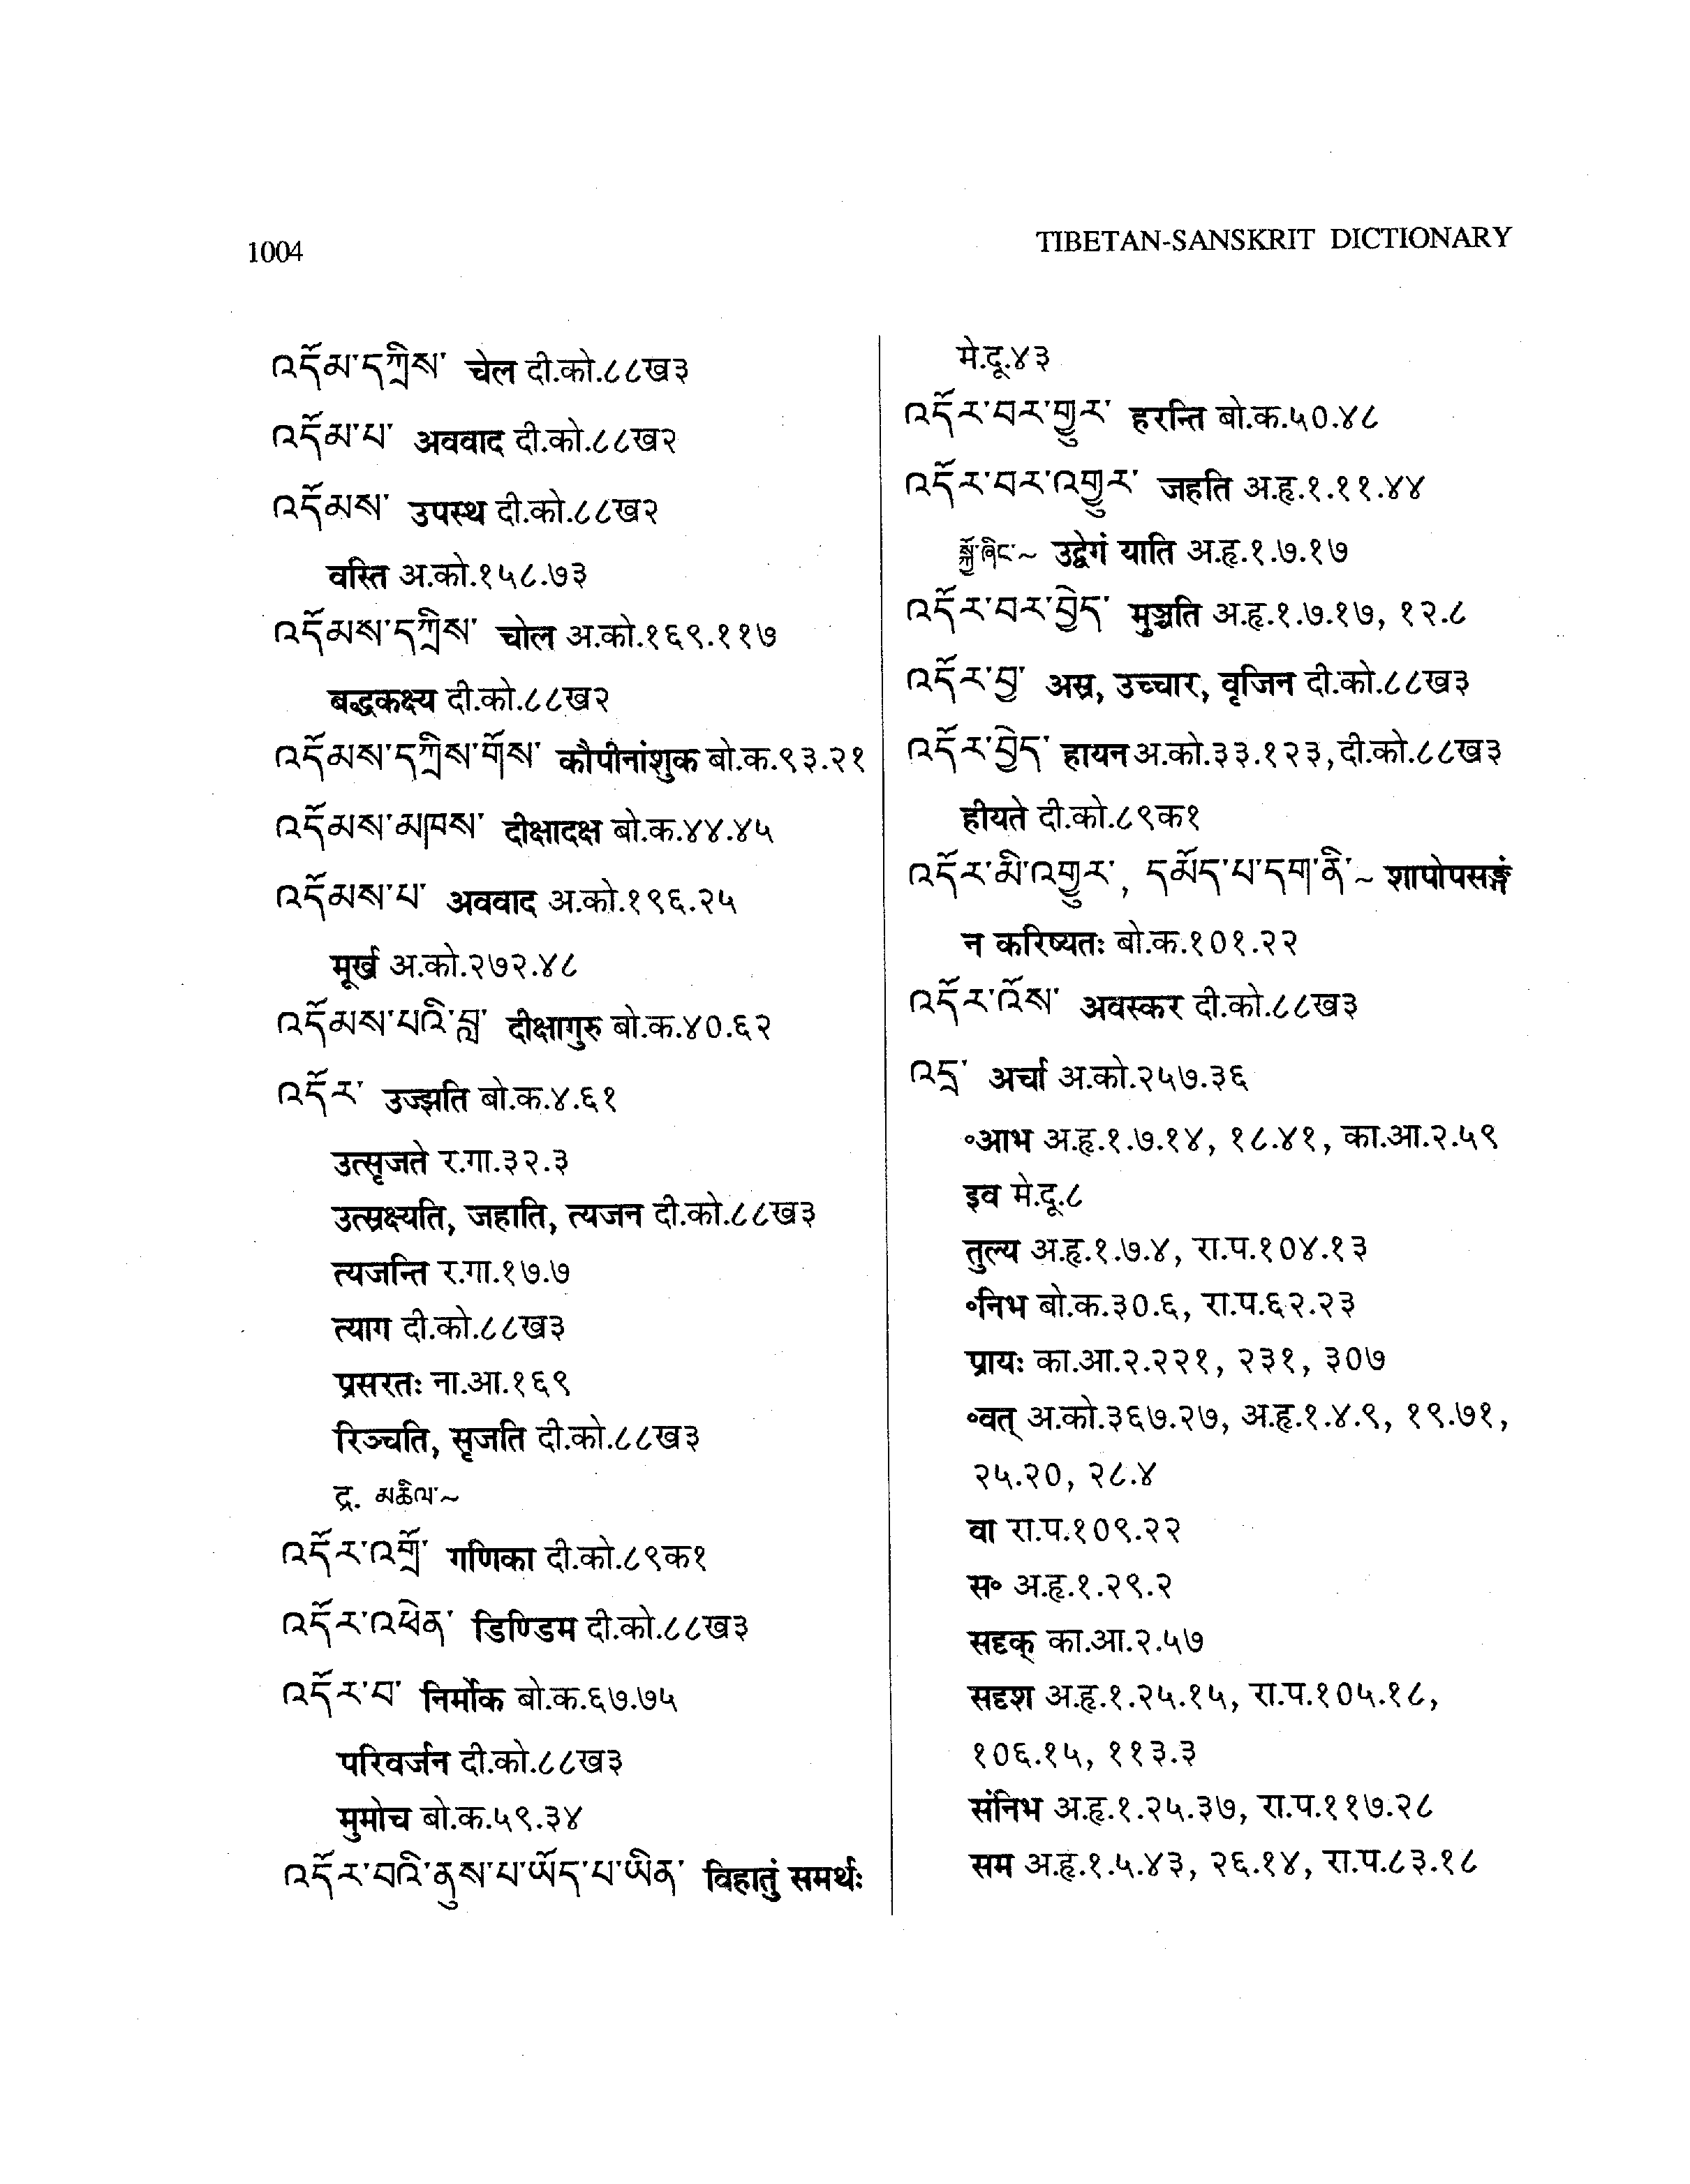 1004
TIBETAN-SANSKRIT DICTIONARY
འདོམ་དཀྲིས་ चेल दी.को.८८ख३
འདོམ་པ་ अववाद दी.को.८८ख२
འདོམས་ उपस्थ दी.को.८८ख२
वस्ति अ.को.१५८.७३
འདོམས་དཀྲིས་ चोल अ.को.१६९.११७
बद्धकक्ष्य दी.को.८८ख२
འདོམས་དཀྲིས་གོས་ कौपीनांशुक बो.क.९३.२१
འདོམས་མཁས་ दीक्षादक्ष बो.क.४४.४५
འདོམས་པ་ अववाद अ.को.१९६.२५
मूर्ख अ.को.२७२.४८
འདོམས་པའི་བླ་ दीक्षागुरु बो.क.४०.६२
འདོར་ उज्झति बो.क.४.६१
उत्सृजते र.गा.३२.३
उत्स्रक्ष्यति, जहाति, त्यजन दी.को.८८ख३
त्यजन्ति र.गा.१७.७
त्याग दी.को.८८ख३
प्रसरतः ना.आ.१६९
रिञ्चति, सृजति दी.को.८८ख३
द्र. མཆིལ་~
འདོར་འགྲོ་ गणिका दी.को.८९क१
འདོར་འཕེན་ डिण्डिम दी.को.८८ख३
འདོར་བ་ निर्मोक बो.क.६७.७५
परिवर्जन दी.को.८८ख३
मुमोच बो.क.५९.३४
འདོར་བའི་ནུས་པ་ཡོད་པ་ཡིན་ विहातुं समर्थः
मे.दू.४३
འདོར་བར་གྱུར་ हरन्ति बो.क.५०.४८
འདོར་བར་འགྱུར་ जहति अ.हृ.१.११.४४
སྐྱོ་ཞིང་~ उद्वेगं याति अ.हृ.१.७.१७
འདོར་བར་བྱེད་ मुञ्चति अ.हृ.१.७.१७, १२.८
འདོར་བྱ་ अस्र, उच्चार, वृजिन दी.को.८८ख३
འདོར་བྱེད་ हायन अ.को.३३.१२३, दी.को.८८ख३
हीयते दी.को.८९क१
འདོར་མི་འགྱུར་, དམོད་པ་དག་ནི་~ शापोपसङ्गं
न करिष्यतः बो.क.१०१.२२
འདོར་འོས་ अवस्कर दी.को.८८ख३
འདྲ་ अर्चा अ.को.२५७.३६
॰आभ अ.हृ.१.७.१४, १८.४१, का.आ.२.५९
इव मे.दू.८
तुल्य अ.हृ.१.७.४, रा.प.१०४.१३
॰निभ बो.क.३०.६, रा.प.६२.२३
प्रायः का.आ.२.२२१, २३१, ३०७
॰वत् अ.को.३६७.२७, अ.हृ.१.४.९, १९.७१,
२५.२०, २८.४
वा रा.प.१०९.२२
स॰ अ.हृ.१.२९.२
सदृक् का.आ.२.५७
सदृश अ.हृ.१.२५.१५, रा.प.१०५.१८,
१०६.१५, ११३.३
संनिभ अ.हृ.१.२५.३७, रा.प.११७.२८
सम अ.हृ.१.५.४३, २६.१४, रा.प.८३.१८